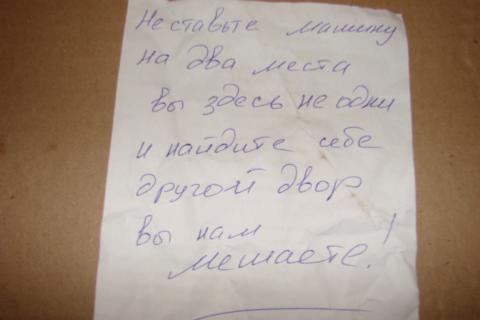 Не ставьте машину
на два места
вы здесь не одни
и найдите себе
другой двор
вы нам
мешаете!